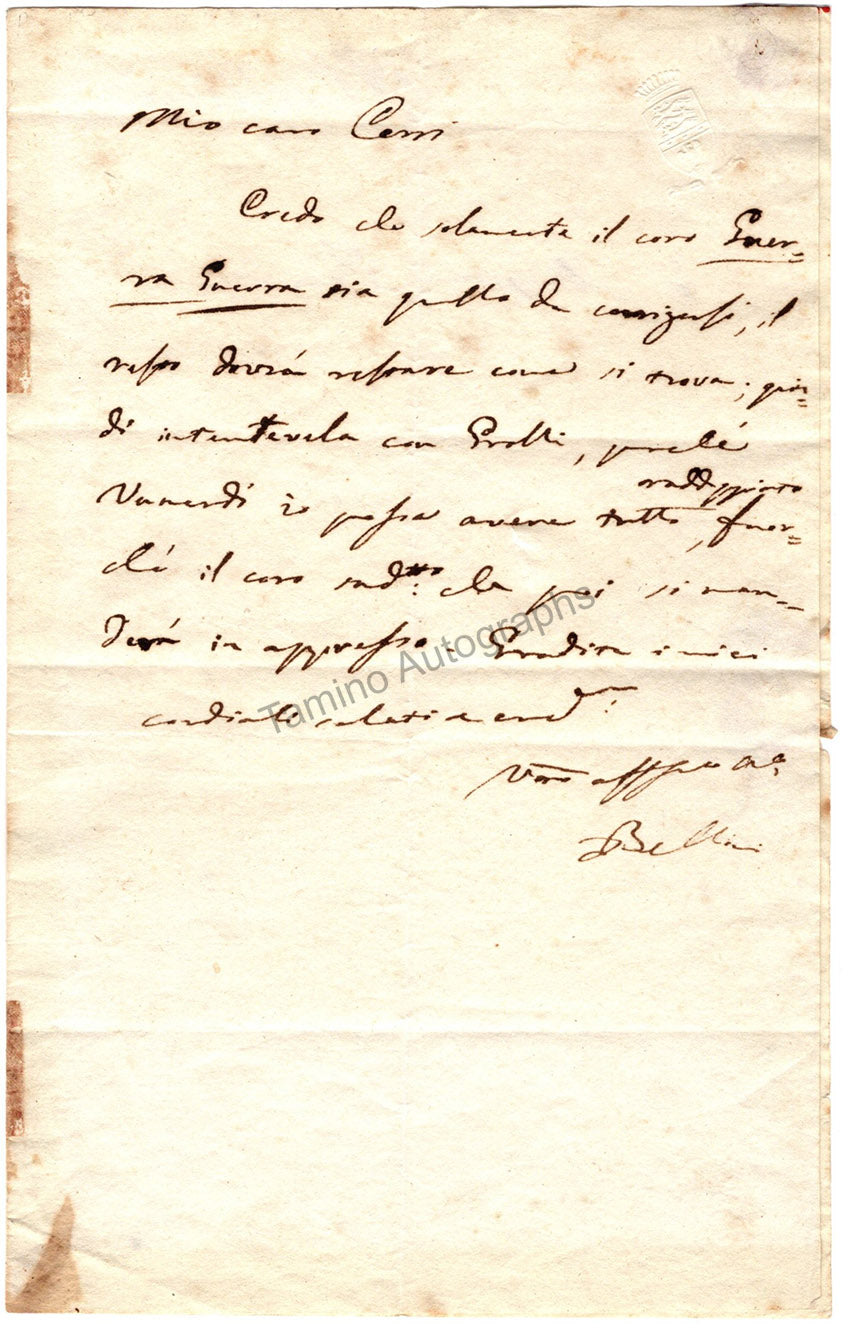 Mio caro Cerri
Credo che solamente il coro Guer=
ra Guerra sia quello da corrigersi, il
resto dovrà restare come si trova; quin=
di intentevela con Grolli, perché
raddoppiato
Venerdì io possa avere tutto, fuor=
ché il coro sudtto: che poi si man=
derà in appresso. Gradite i miei
cordiali saluti e
Vro affmo a:
Bellini
Tamino Autographs